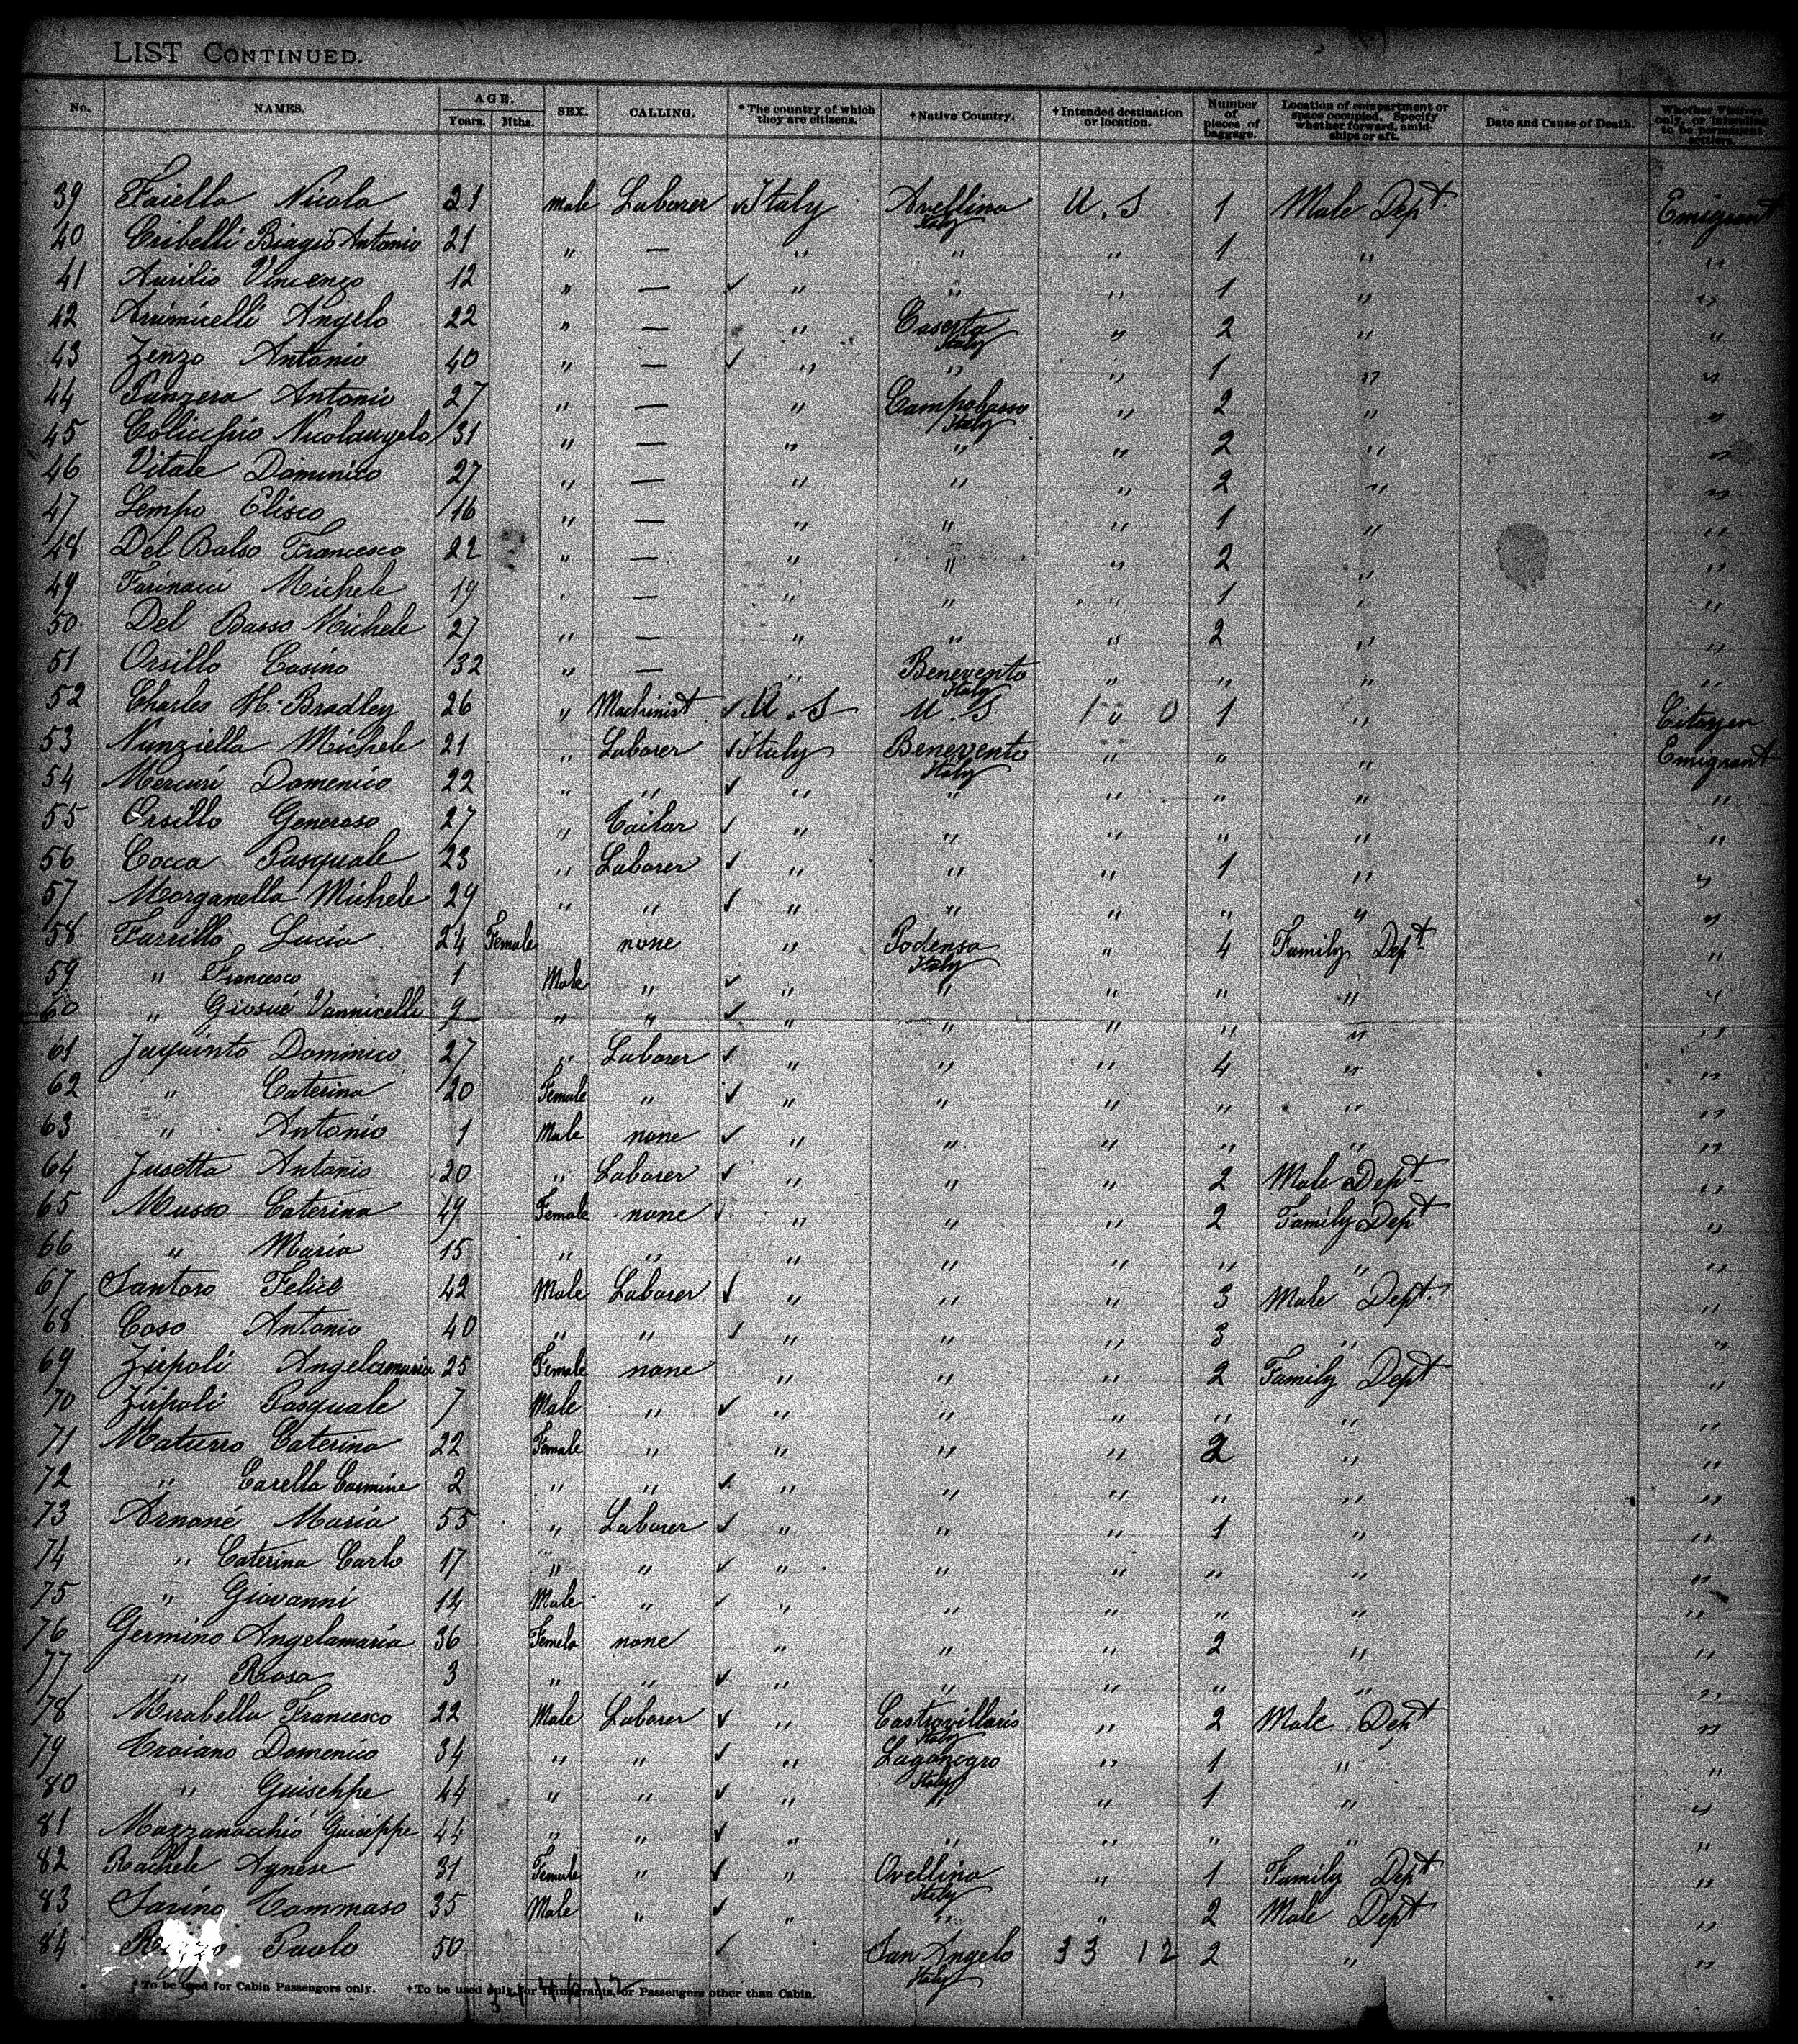 LIST CONTINUED.
No. NAMES. AGE. Years. Mths. SEX. CALLING. * The country of which they are citizens. † Native Country. † Intended destination or location. Number of pieces of baggage. Location of compartment or space occupied. Specify whether forward, amidships or aft. Date and Cause of Death. Whether Visitors only, or intending to be permanent settlers.
39 Faiella Nicola 21 Male Laborer ✓ Italy Avellino Italy U. S 1 Male Dept Emigrant
40 Cribelli Biagio Antonio 21 " — " " " 1 " "
41 Aurilio Vincenzo 12 " — ✓ " " " 1 " "
42 Arrimicelli Angelo 22 " — " Caserta Italy " 2 " "
43 Zenzo Antonio 40 " — ✓ " " " 1 " "
44 Panzera Antonio 27 " — " Campobasso Italy " 2 " "
45 Colicchio Nicolangelo 31 " — " " " 2 " "
46 Vitale Dominico 27 " — " " " 2 " "
47 Lempo Elisco 16 " — " " " 1 " "
48 Del Balso Francesco 22 " — " " " 2 " "
49 Farinacci Michele 19 " — " " " 1 " "
50 Del Basso Michele 27 " — " " " 2 " "
51 Orsillo Cosino 32 " — " Benevento Italy " " " "
52 Charles H. Bradley 26 " Machinist ✓ U. S U. S 1 " 0 1 " Citayen
53 Nunziella Michele 21 " Laborer ✓ Italy Benevento Italy " " " Emigrant
54 Mercuri Domenico 22 " " ✓ " " " " " "
55 Orsillo Generoso 27 " Tailar ✓ " " " " " "
56 Cocca Pasquale 23 " Laborer ✓ " " " 1 " "
57 Morganella Michele 29 " " ✓ " " " " " "
58 Farrillo Lucia 24 Female none " Podensa Italy " 4 Family Dept "
59 " Francesco 1 Male " ✓ " " " " " "
60 " Giosué Vannicelli 9 " " ✓ " " " " " "
61 Jaquinto Dominico 27 " Laborer ✓ " " " 4 " "
62 " Caterina 20 Female " ✓ " " " " " "
63 " Antonio 1 Male none ✓ " " " " " "
64 Jusetta Antonio 20 " Laborer ✓ " " " 2 Male Dept "
65 Musso Caterina 49 Female none ✓ " " " 2 Family Dept "
66 " Maria 15 " " " " " " " "
67 Santoro Felice 42 Male Laborer ✓ " " " 3 Male Dept. "
68 Coso Antonio 40 " " ✓ " " " 3 " "
69 Zirpoli Angelamaria 25 Female none " " " 2 Family Dept "
70 Zirpoli Pasquale 7 Male " ✓ " " " " " "
71 Maturro Caterina 22 Female " " " " 2 " "
72 " Carella Carmine 2 " " ✓ " " " " " "
73 Arnoné Maria 55 " Laborer ✓ " " " 1 " "
74 " Caterina Carlo 17 " " ✓ " " " " " "
75 " Giovanni 14 Male " ✓ " " " " " "
76 Germino Angelamaria 36 Femela none " " " 2 " "
77 " Rosa 3 " " ✓ " " " " " "
78 Mirabella Francesco 22 Male Laborer ✓ " Castrovillaris Italy " 2 Male Dept "
79 Troiano Domenico 34 " " ✓ " Lagonegro Italy " 1 " "
80 " Guiseppe 44 " " ✓ " " " 1 " "
81 Mazzanocchio Guiseppe 44 " " ✓ " " " " " "
82 Rachele Agnese 31 Female " ✓ " Ovellino Italy " 1 Family Dept "
83 Sarino Tommaso 35 Male " ✓ " " " 2 Male Dept "
84 Paolo 50 ✓ San Angelo Italy 33 12 2 " "
* To be used for Cabin Passengers only. † To be used only for Immigrants, or Passengers other than Cabin.